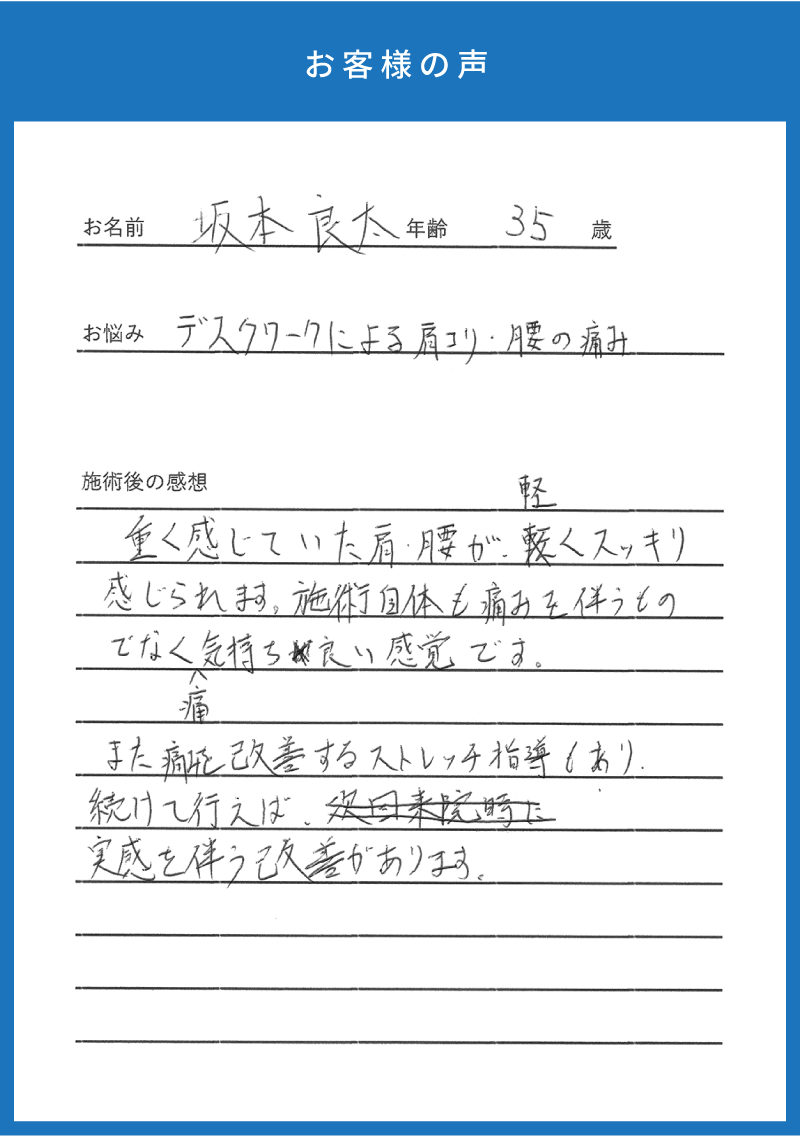 お客様の声
お名前 坂本 良太 年齢 35 歳
お悩み デスクワークによる肩コリ・腰の痛み
施術後の感想
軽
重く感じていた肩・腰が、軽くスッキリ
感じられます。施術自体も痛みを伴うもの
でなく気持ち良い感覚です。
痛
また痛みを改善するストレッチ指導もあり、
続けて行えば、次回来院時に
実感を伴う改善があります。